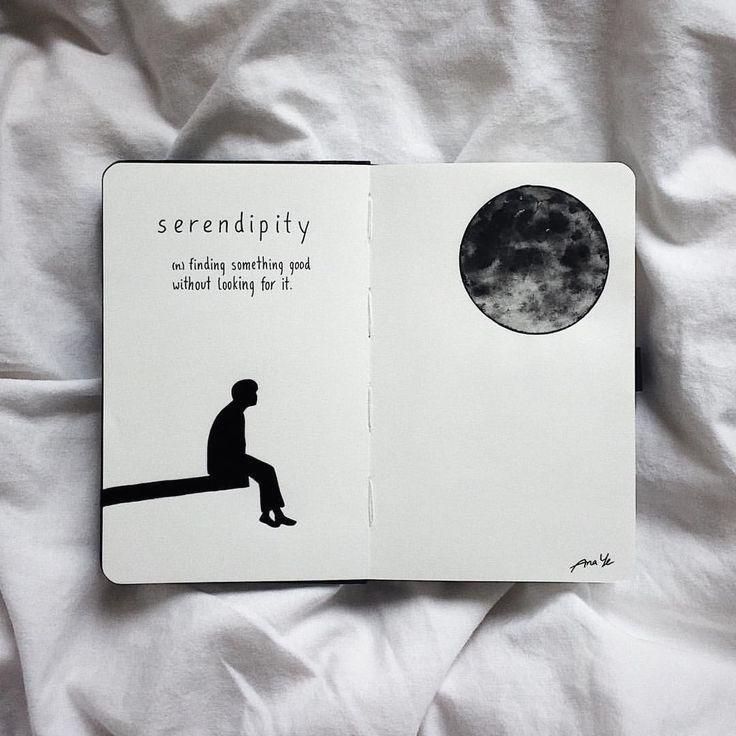 serendipity
(n.) finding something good
without looking for it.
Ana Ye